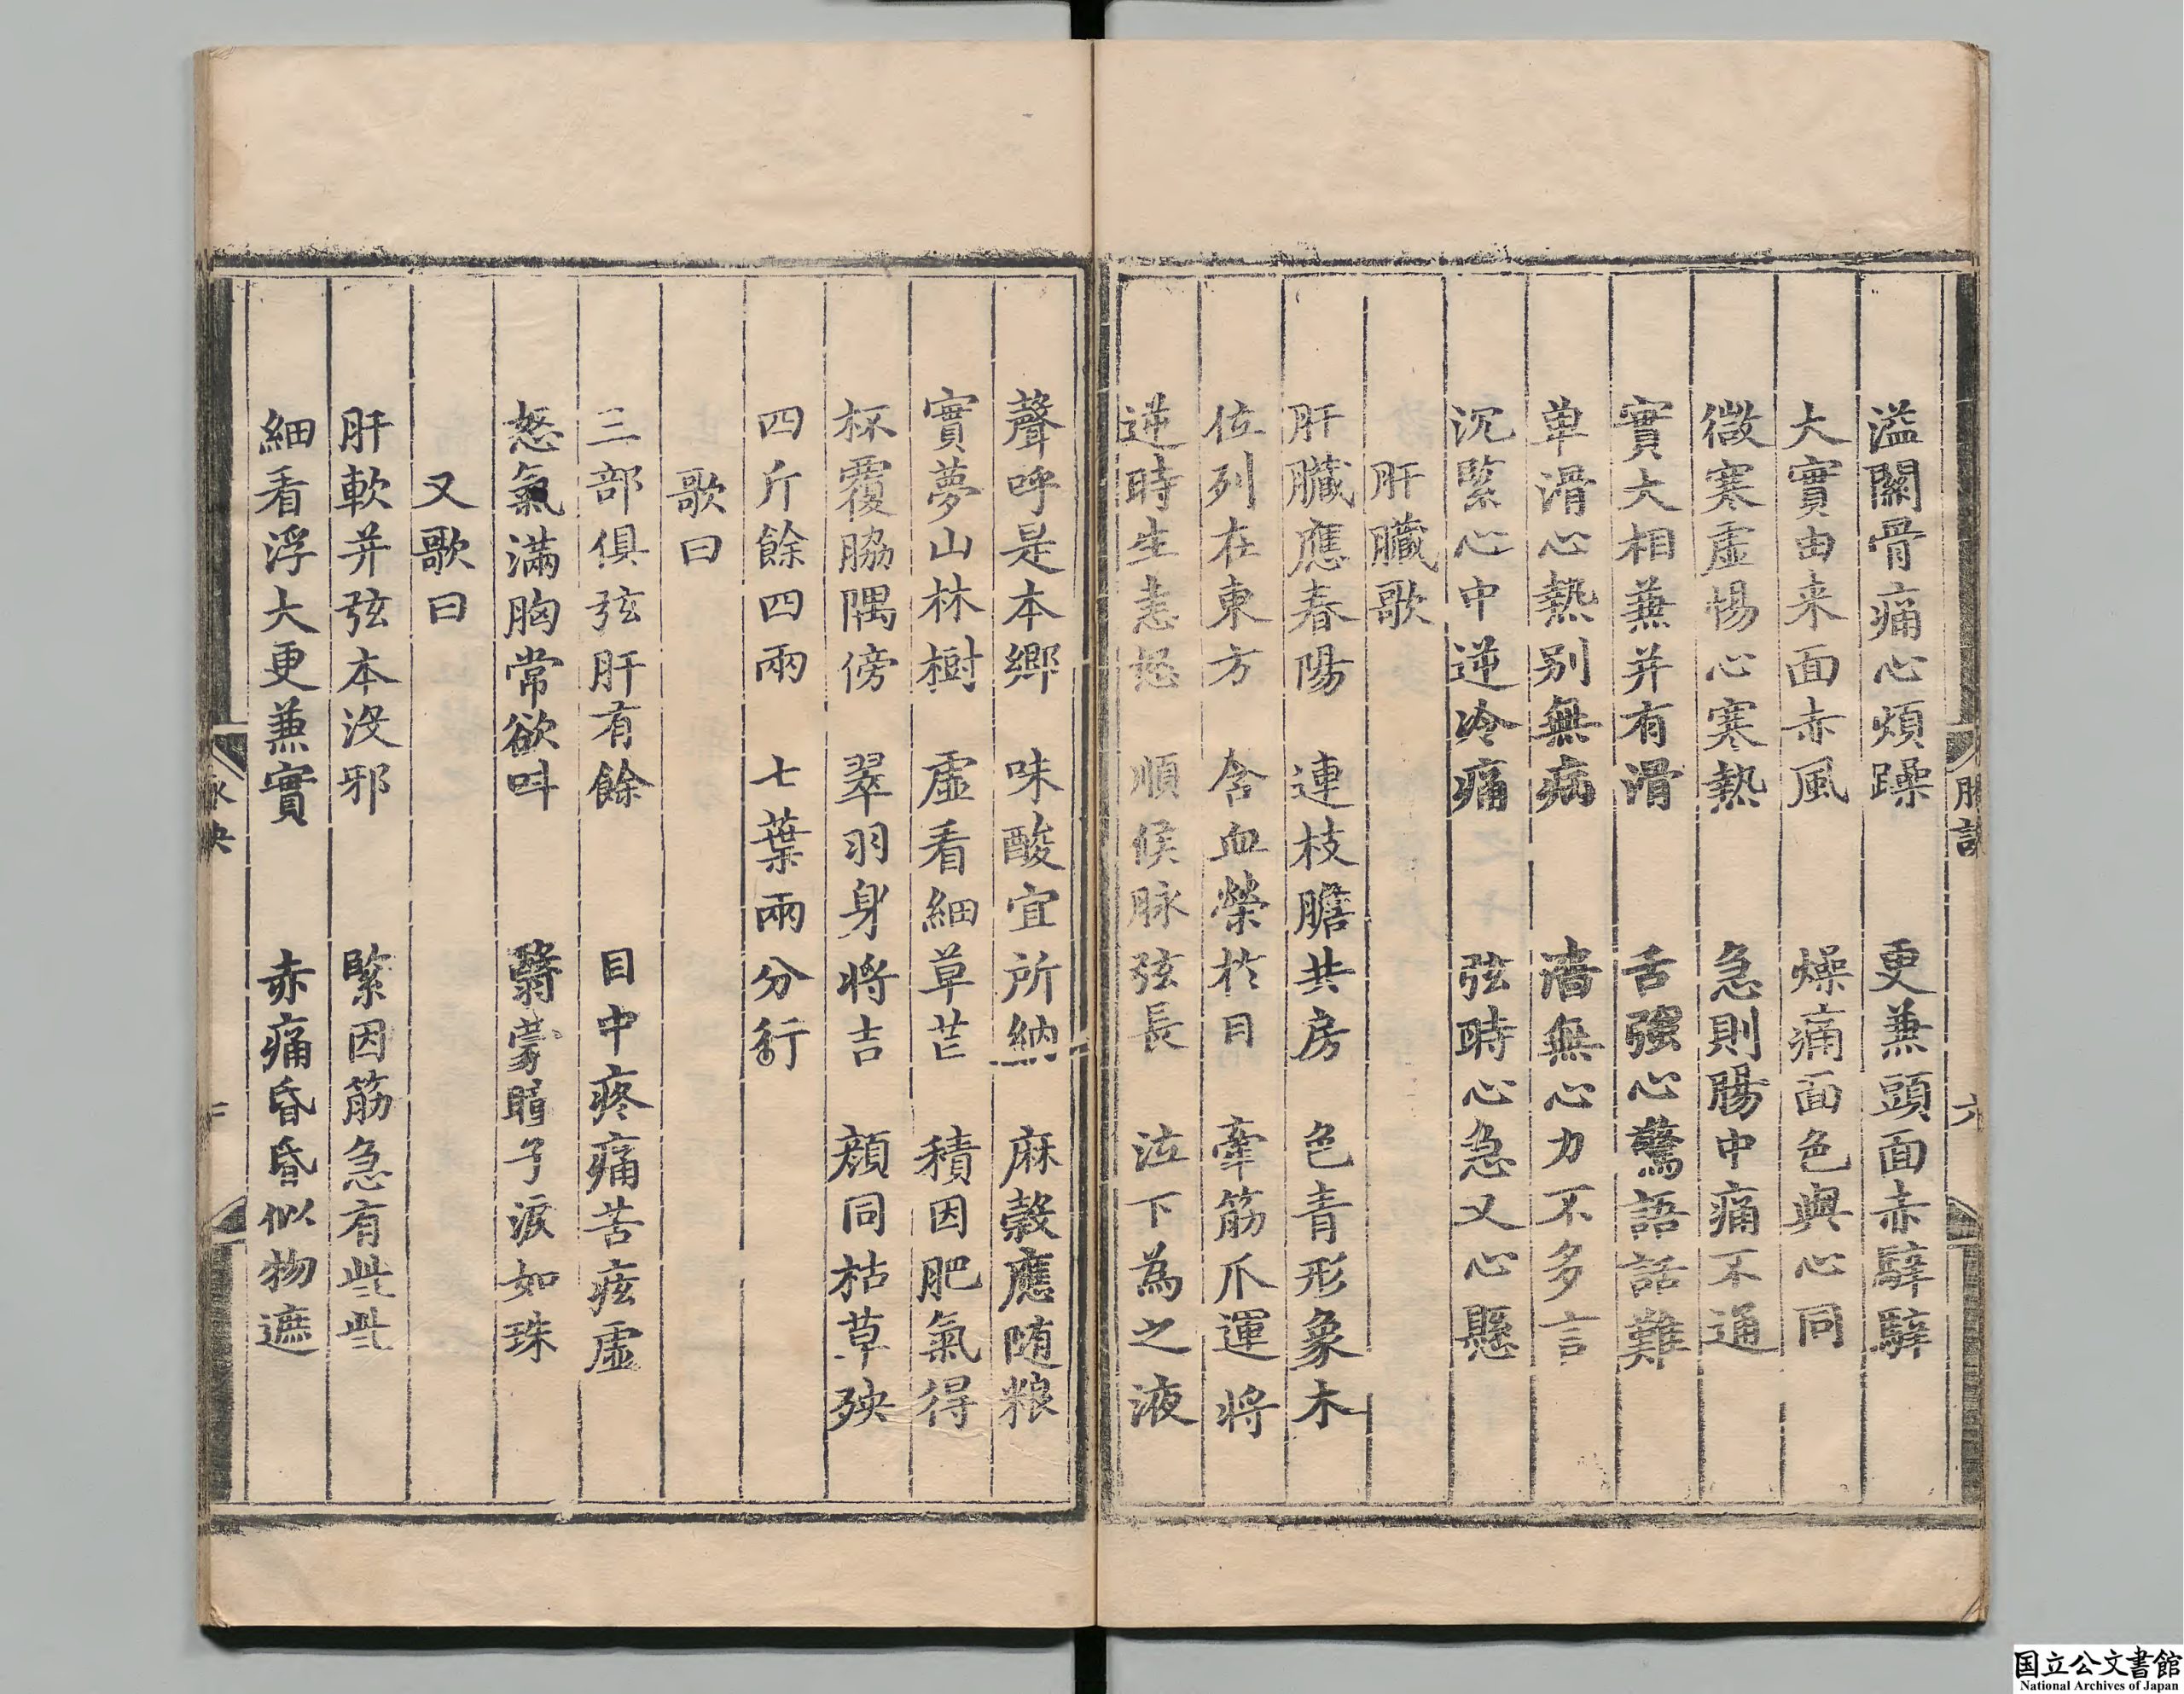 溢關骨痛心煩躁　更兼頭面赤騂騂
大實由来面赤風　燥痛面色與心同
微寒虛惕心寒熱　急則腸中痛不通
實大相兼并有滑　舌強心驚語話難
单滑心熱別無病　濇無心力不多言
沉緊心中逆冷痛　弦時心急又心懸
肝臟歌
肝臟應春陽　連枝膽共房　色青形象木
位列在東方　含血榮於目　牽筋爪運將
逆時生恚怒　順候脉弦長　泣下為之液
聲呼是本鄉　味酸宜所納　麻穀應随粮
實夢山林樹　虛看細草芒　積因肥氣得
杯覆脇隅傍　翠羽身將吉　顏同枯草殃
四斤餘四兩　七葉兩分行
歌曰
三部俱弦肝有餘　目中疼痛苦痃虛
怒氣滿胸常欲呌　翳蒙瞳子淚如珠
又歌曰
肝軟并弦本沒邪　緊因筋急有些些
細看浮大更兼實　赤痛昏昏似物遮
六
国立公文書館
National Archives of Japan